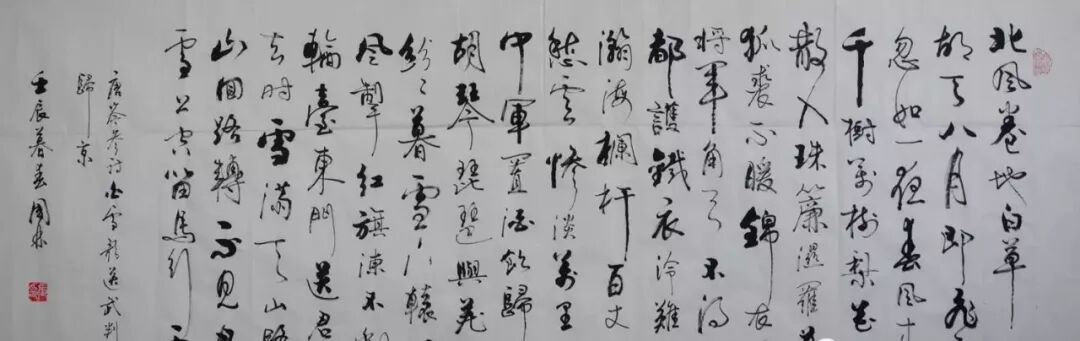 北風卷地白草
胡天八月即飛
忽如一夜春風
千樹萬樹梨花
散入珠簾濕羅
狐裘不暖錦衾
將軍角弓不得
都護鐵衣冷難
瀚海欄杆百丈
愁雲慘淡萬里
中軍置酒飲歸
胡琴琵琶與羌
紛々暮雪下轅
風掣紅旗凍不
輪臺東門送君
去時雪滿天山路
山回路轉不見
雪上空留馬行
唐岑參詩白雪歌送武判
歸京
壬辰暮春